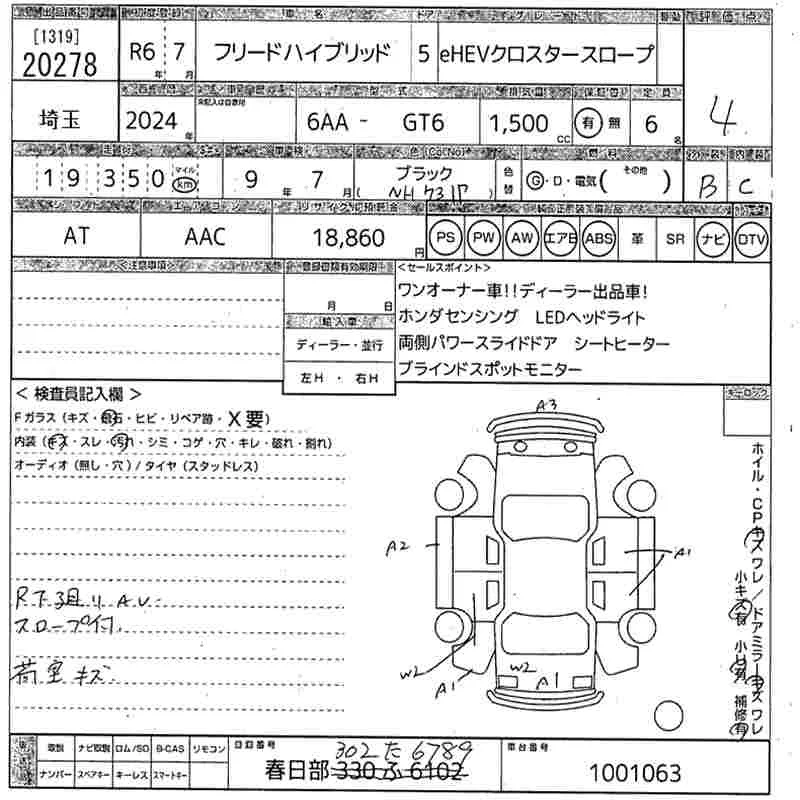 [1319]
20278
R6 年 7 月
フリードハイブリッド
ドア
5
eHEVクロスタースロープ
評価点
4
埼玉
2024 年
型式
6AA - GT6
排気量
1,500 cc
有 無
定員
6 名
19350
マイル
km
車検
9 年 7 月
色(Col No)
ブラック
( NH 731P )
色替
燃料
G・D・電気( その他 )
外装
B
内装
C
シフト
AT
エアコン
AAC
リサイクル預託金
18,860 円
純正装備品
PS PW AW エアB ABS 革 SR ナビ DTV
<注意事項>
登録書類有効期限
月 日
輸入車
ディーラー・並行
左H ・ 右H
<セールスポイント>
ワンオーナー車!!ディーラー出品車!
ホンダセンシング LEDヘッドライト
両側パワースライドドア シートヒーター
ブラインドスポットモニター
< 検査員記入欄 >
Fガラス (キズ・飛石・ヒビ・リペア跡・X要)
内装 (キズ・スレ・汚れ・シミ・コゲ・穴・キレ・破れ・割れ)
オーディオ (無し・穴) / タイヤ (スタッドレス)
スロープ付.
荷室 キズ
A3
A2
A1
W2
A1
W2
A1
ホイル・CPキズワレ/ドアミラーキズワレ
小キズ有 小凹有 補修有
取説 ナビ取説 ロム/SD B-CAS リモコン
ナンバー スペアキー キーレス スマートキー
登録番号
302 た 6789
春日部 330 ふ 6102
車台番号
1001063